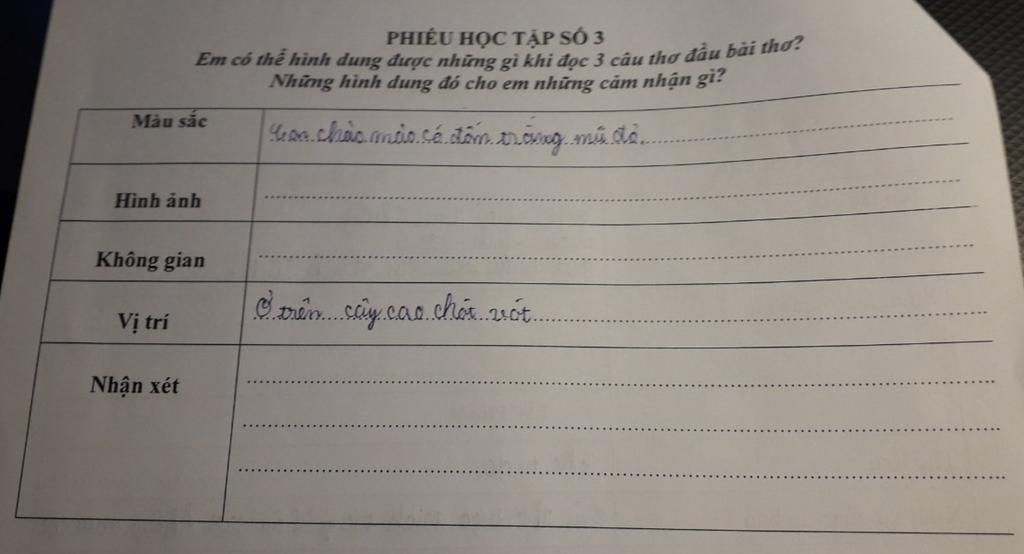 PHIẾU HỌC TẬP SỐ 3
Em có thể hình dung được những gì khi đọc 3 câu thơ đầu bài thơ?
Những hình dung đó cho em những cảm nhận gì?
Màu sắc
Con chào mào có đốm trắng mũ đỏ.
Hình ảnh
Không gian
Vị trí
Ở trên cây cao chót vót
Nhận xét